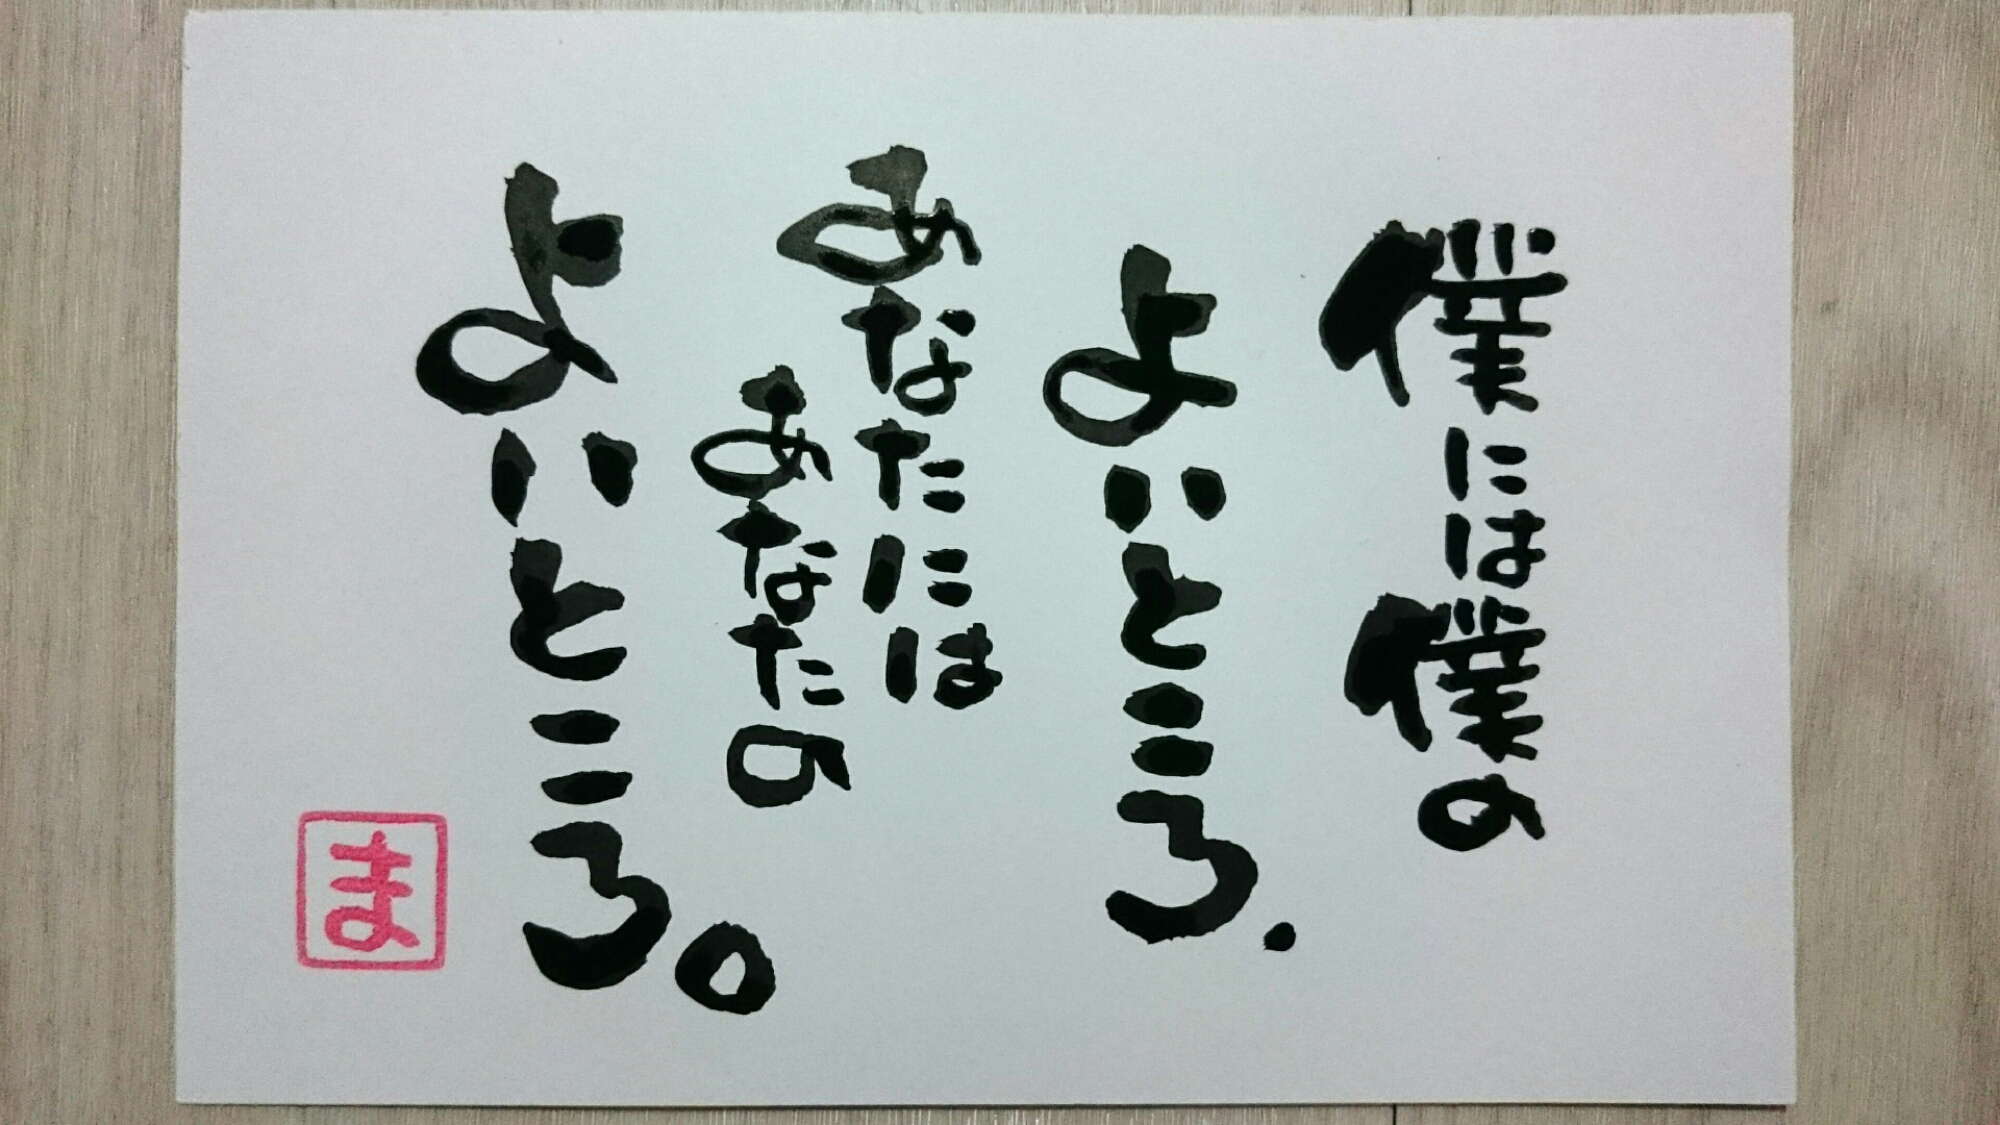 僕には僕の
よいところ.
あなたには
あなたの
よいところ。
ま